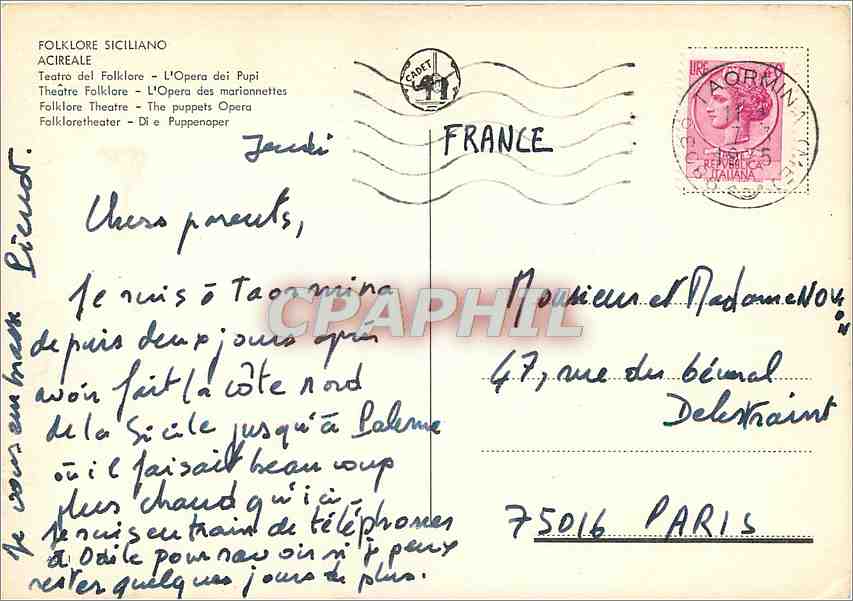 FOLKLORE SICILIANO
ACIREALE
Teatro del Folklore - L'Opera dei Pupi
Theâtre Folklore - L'Opera des marionnettes
Folklore Theatre - The puppets Opera
Folkloretheater - Di e Puppenoper
CADET
LIRE
REPVBBLICA
ITALIANA
TAORMINA
Jeudi
FRANCE
Chers parents,
Je suis à Taormina
depuis deux jours après
avoir fait la côte nord
de la Sicile jusqu'à Palerme
où il faisait beaucoup
plus chaud qu'ici -
Je suis en train de téléphoner
à Odile pour savoir si je peux
rester quelques jours de plus.
Je vous embrasse
Monsieur et Madame NOVION
47, rue du Général
Delestraint
75016 PARIS
CPAPHIL